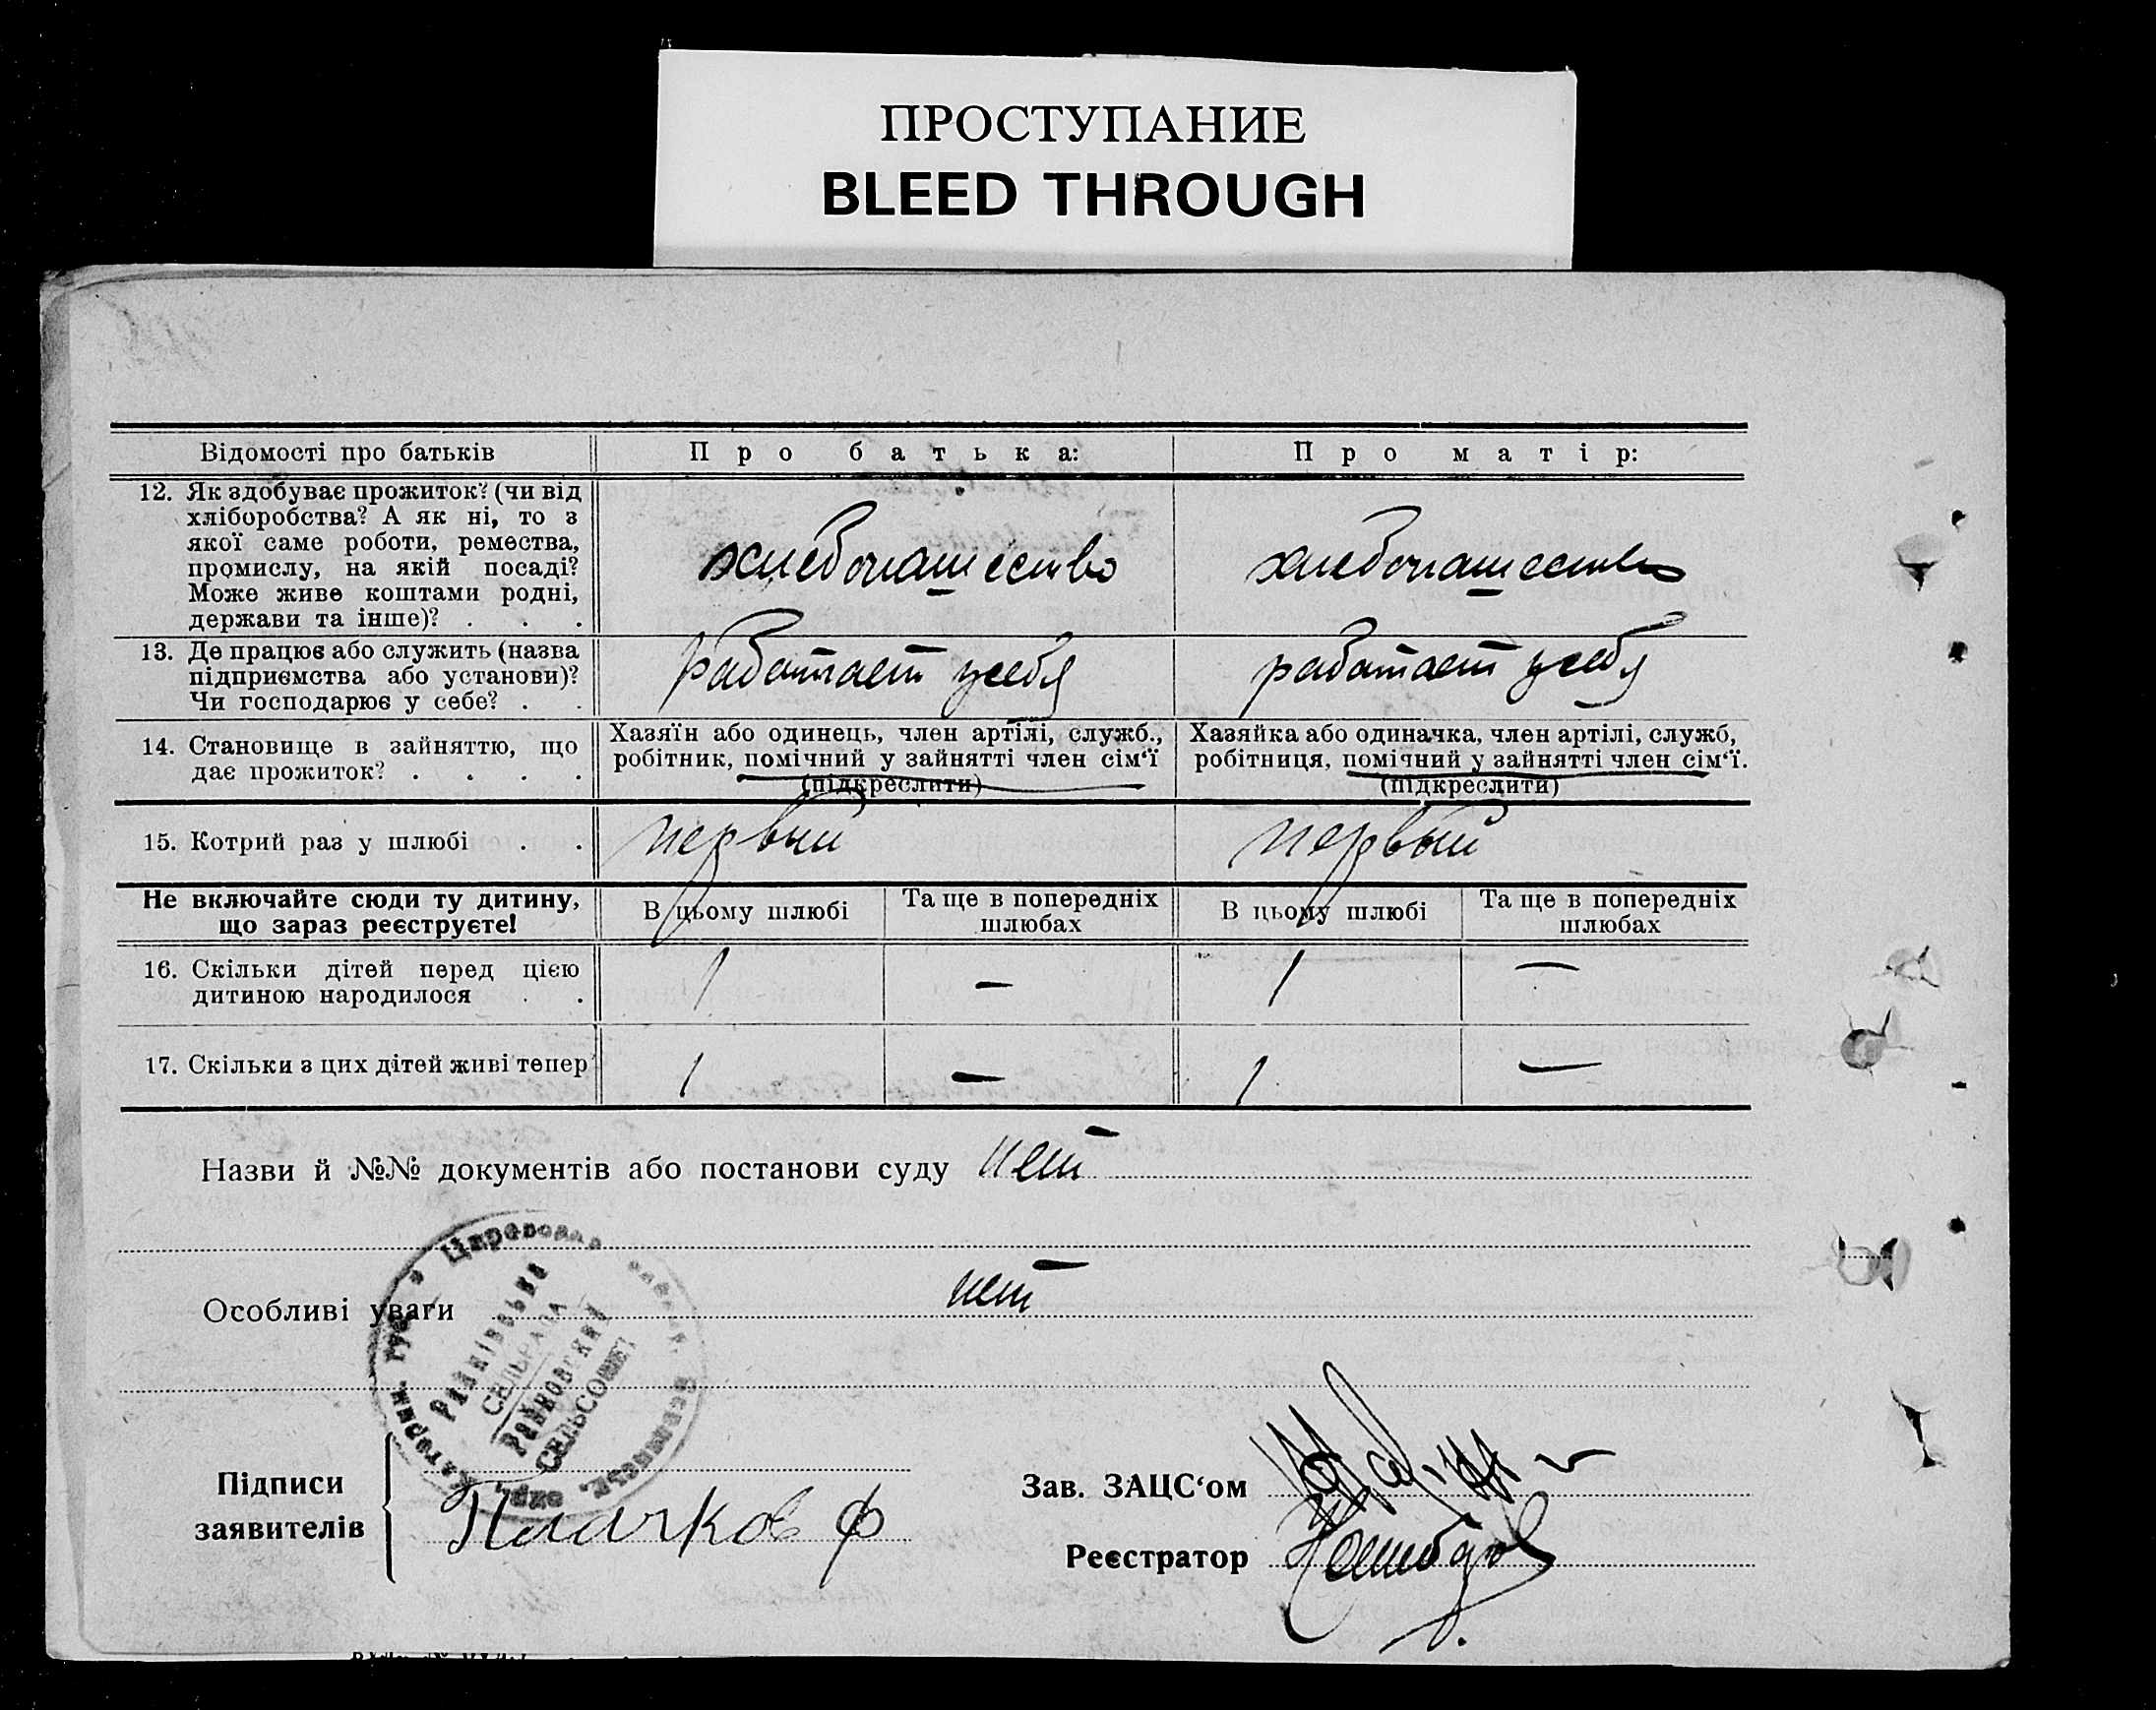 ПРОСТУПАНИЕ
BLEED THROUGH
Відомості про батьків
Про батька:
Про матір:
12. Як здобуває прожиток? (чи від
хліборобства? А як ні, то з
якої саме роботи, ремества,
промислу, на якій посаді?
Може живе коштами родні,
держави та інше)? . . .
хлебопашество
хлебопашество
13. Де працює або служить (назва
підприємства або установи)?
Чи господарює у себе? . .
работает у себя
работает у себя
14. Становище в зайняттю, що
дає прожиток? . . . .
Хазяїн або одинець, член артілі, служб.,
робітник, помічний у зайнятті член сім'ї
(підкреслити)
Хазяйка або одиначка, член артілі, служб,
робітниця, помічний у зайнятті член сім'ї.
(підкреслити)
15. Котрий раз у шлюбі . .
первый
первый
Не включайте сюди ту дитину,
що зараз реєструєте!
В цьому шлюбі
Та ще в попередніх
шлюбах
В цьому шлюбі
Та ще в попередніх
шлюбах
16. Скільки дітей перед цією
дитиною народилося . .
1
—
1
—
17. Скільки з цих дітей живі тепер
1
—
1
—
Назви й №№ документів або постанови суду нет
Особливі уваги нет
СЕЛЬРАДА
РАЙНОВСКИЙ
СЕЛЬСОВЕТ
Підписи
заявителів
Плачков Ф
Зав. ЗАЦС'ом
Реєстратор